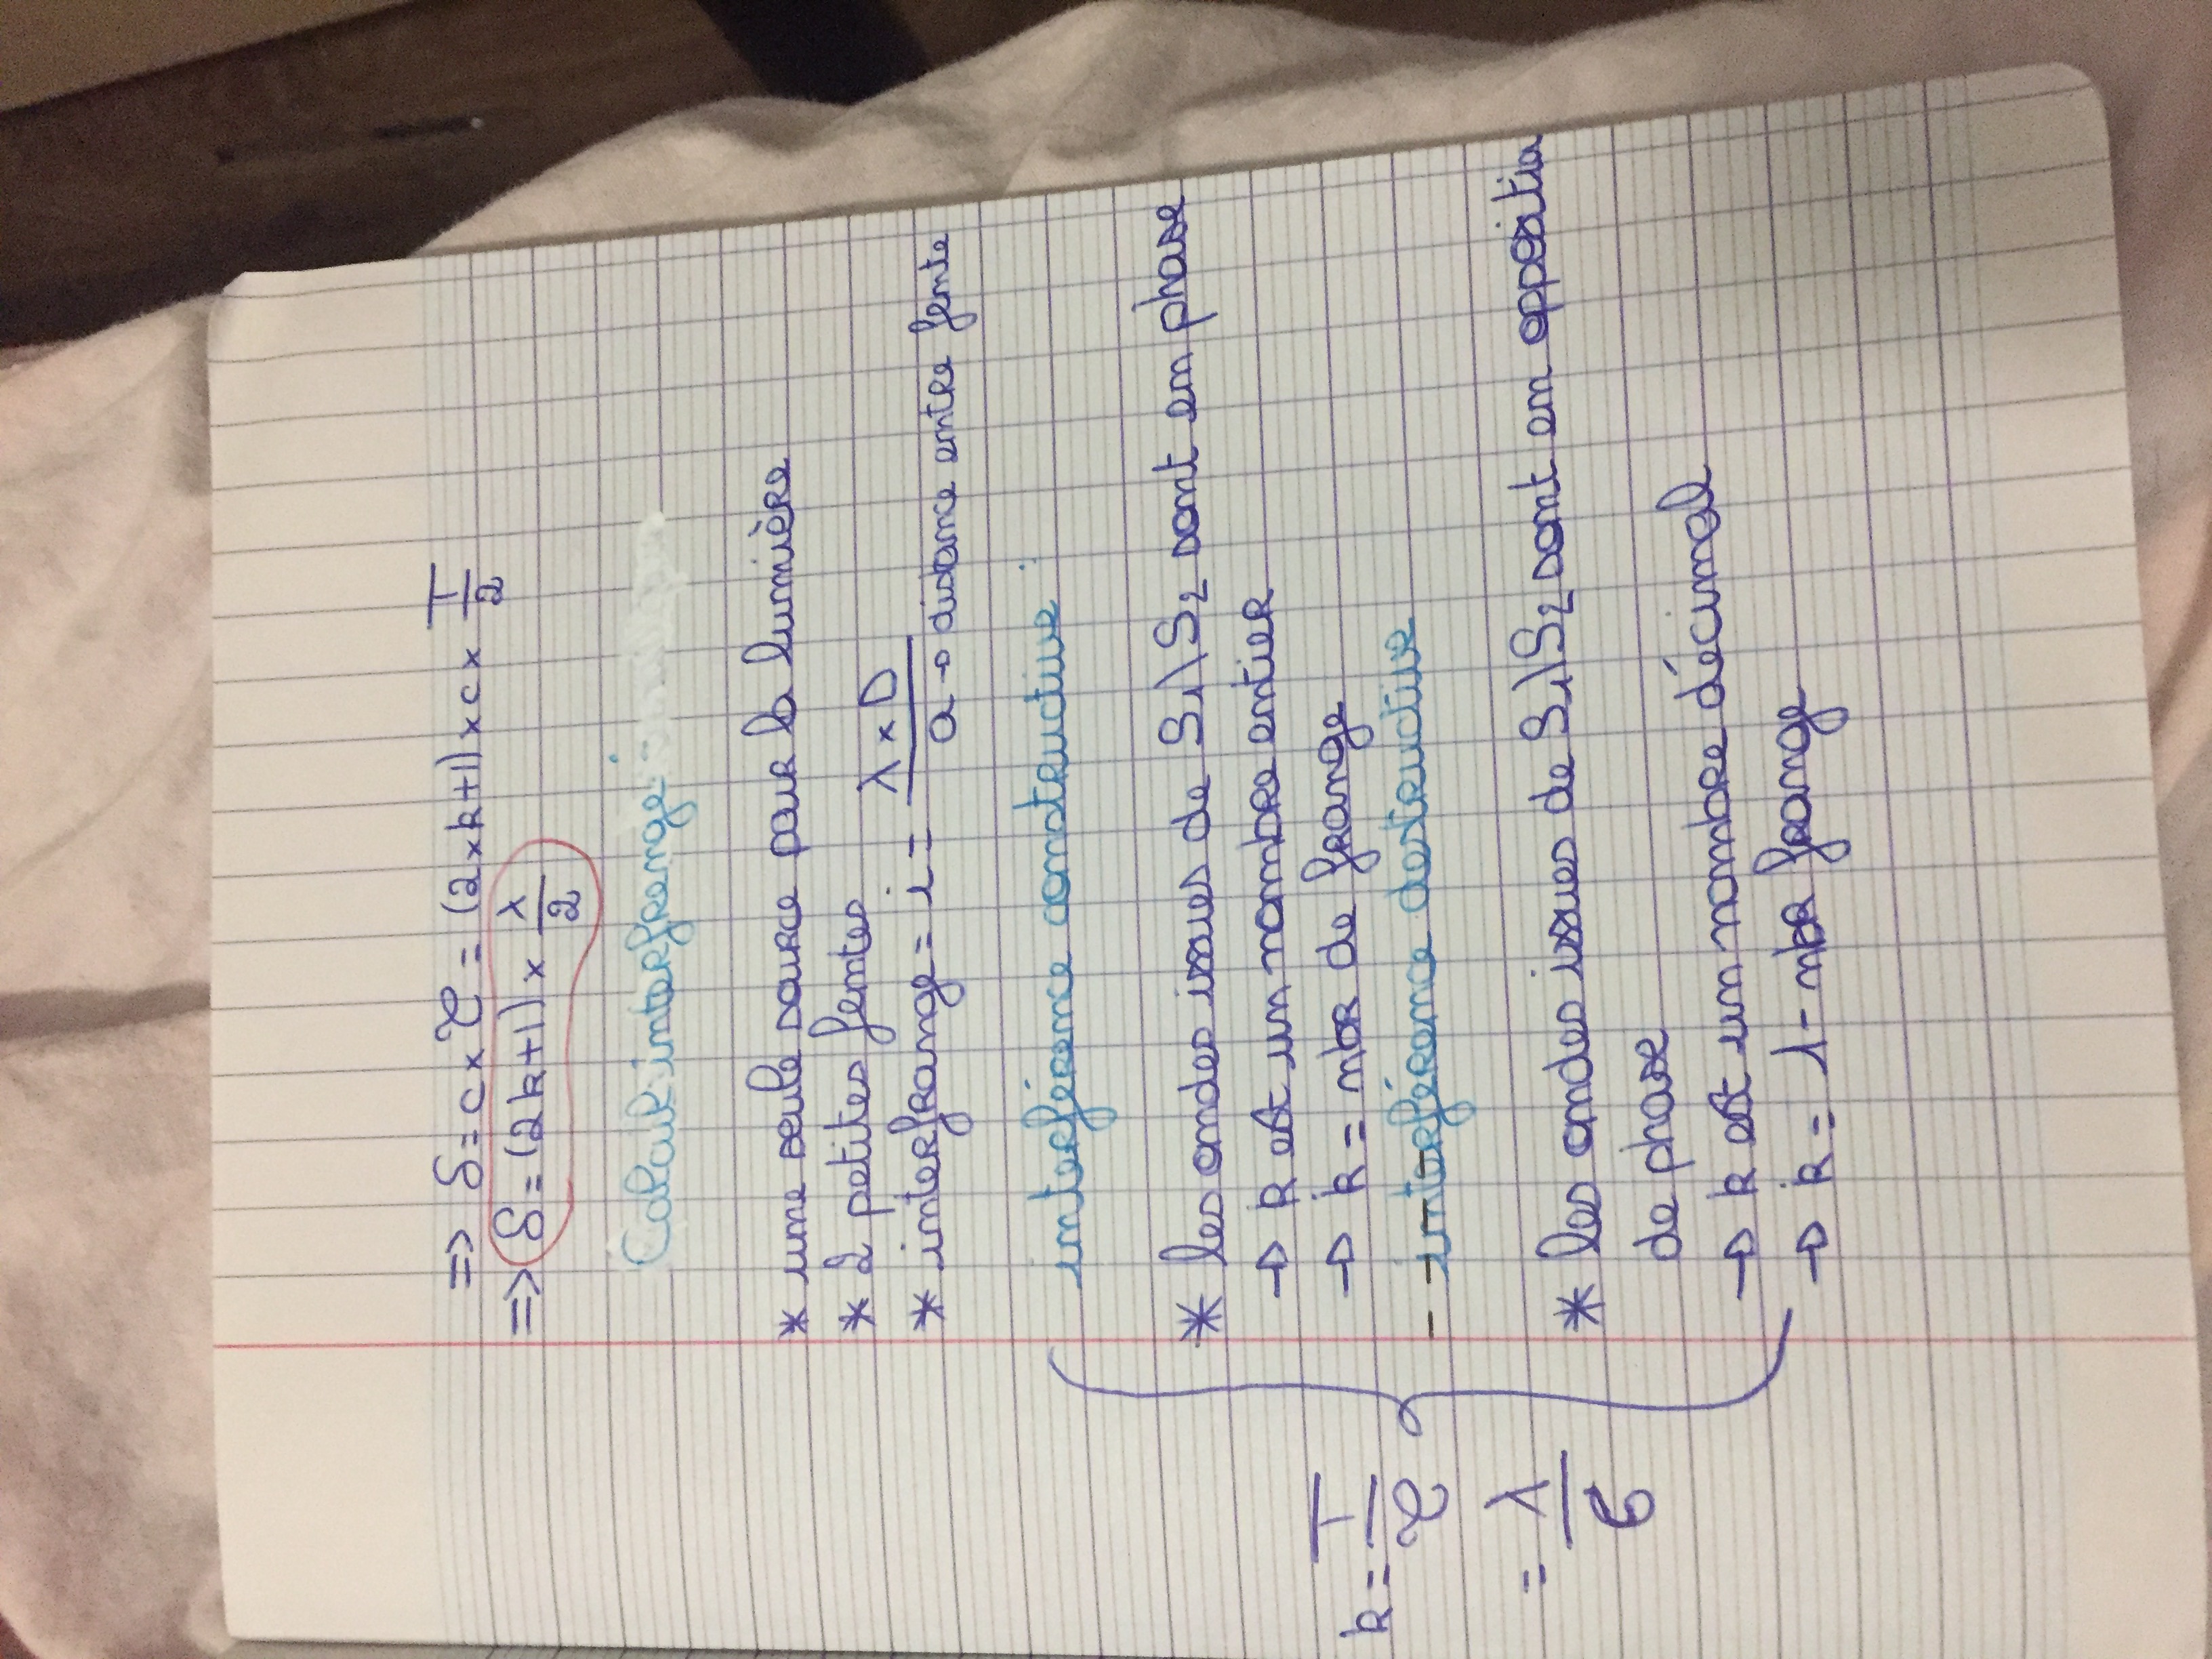 => δ = c × τ = (2 × k + 1) × c × T/2
=> δ = (2k + 1) × λ/2
Calcul interfrenge :
* une seule source pour la lumière
* 2 petites fentes
* interfrange = i = λ × D / a → distance entre fente
interférence constructive :
* les ondes issues de S₁\S₂ sont en phase
→ k est un nombre entier
→ k = nbr de frange
k = T/τ
= λ/δ
- interférence destructive
* les ondes issues de S₁\S₂ sont en oppositio
de phase
→ k est un nombre décimal
→ k = 1 - nbr frange